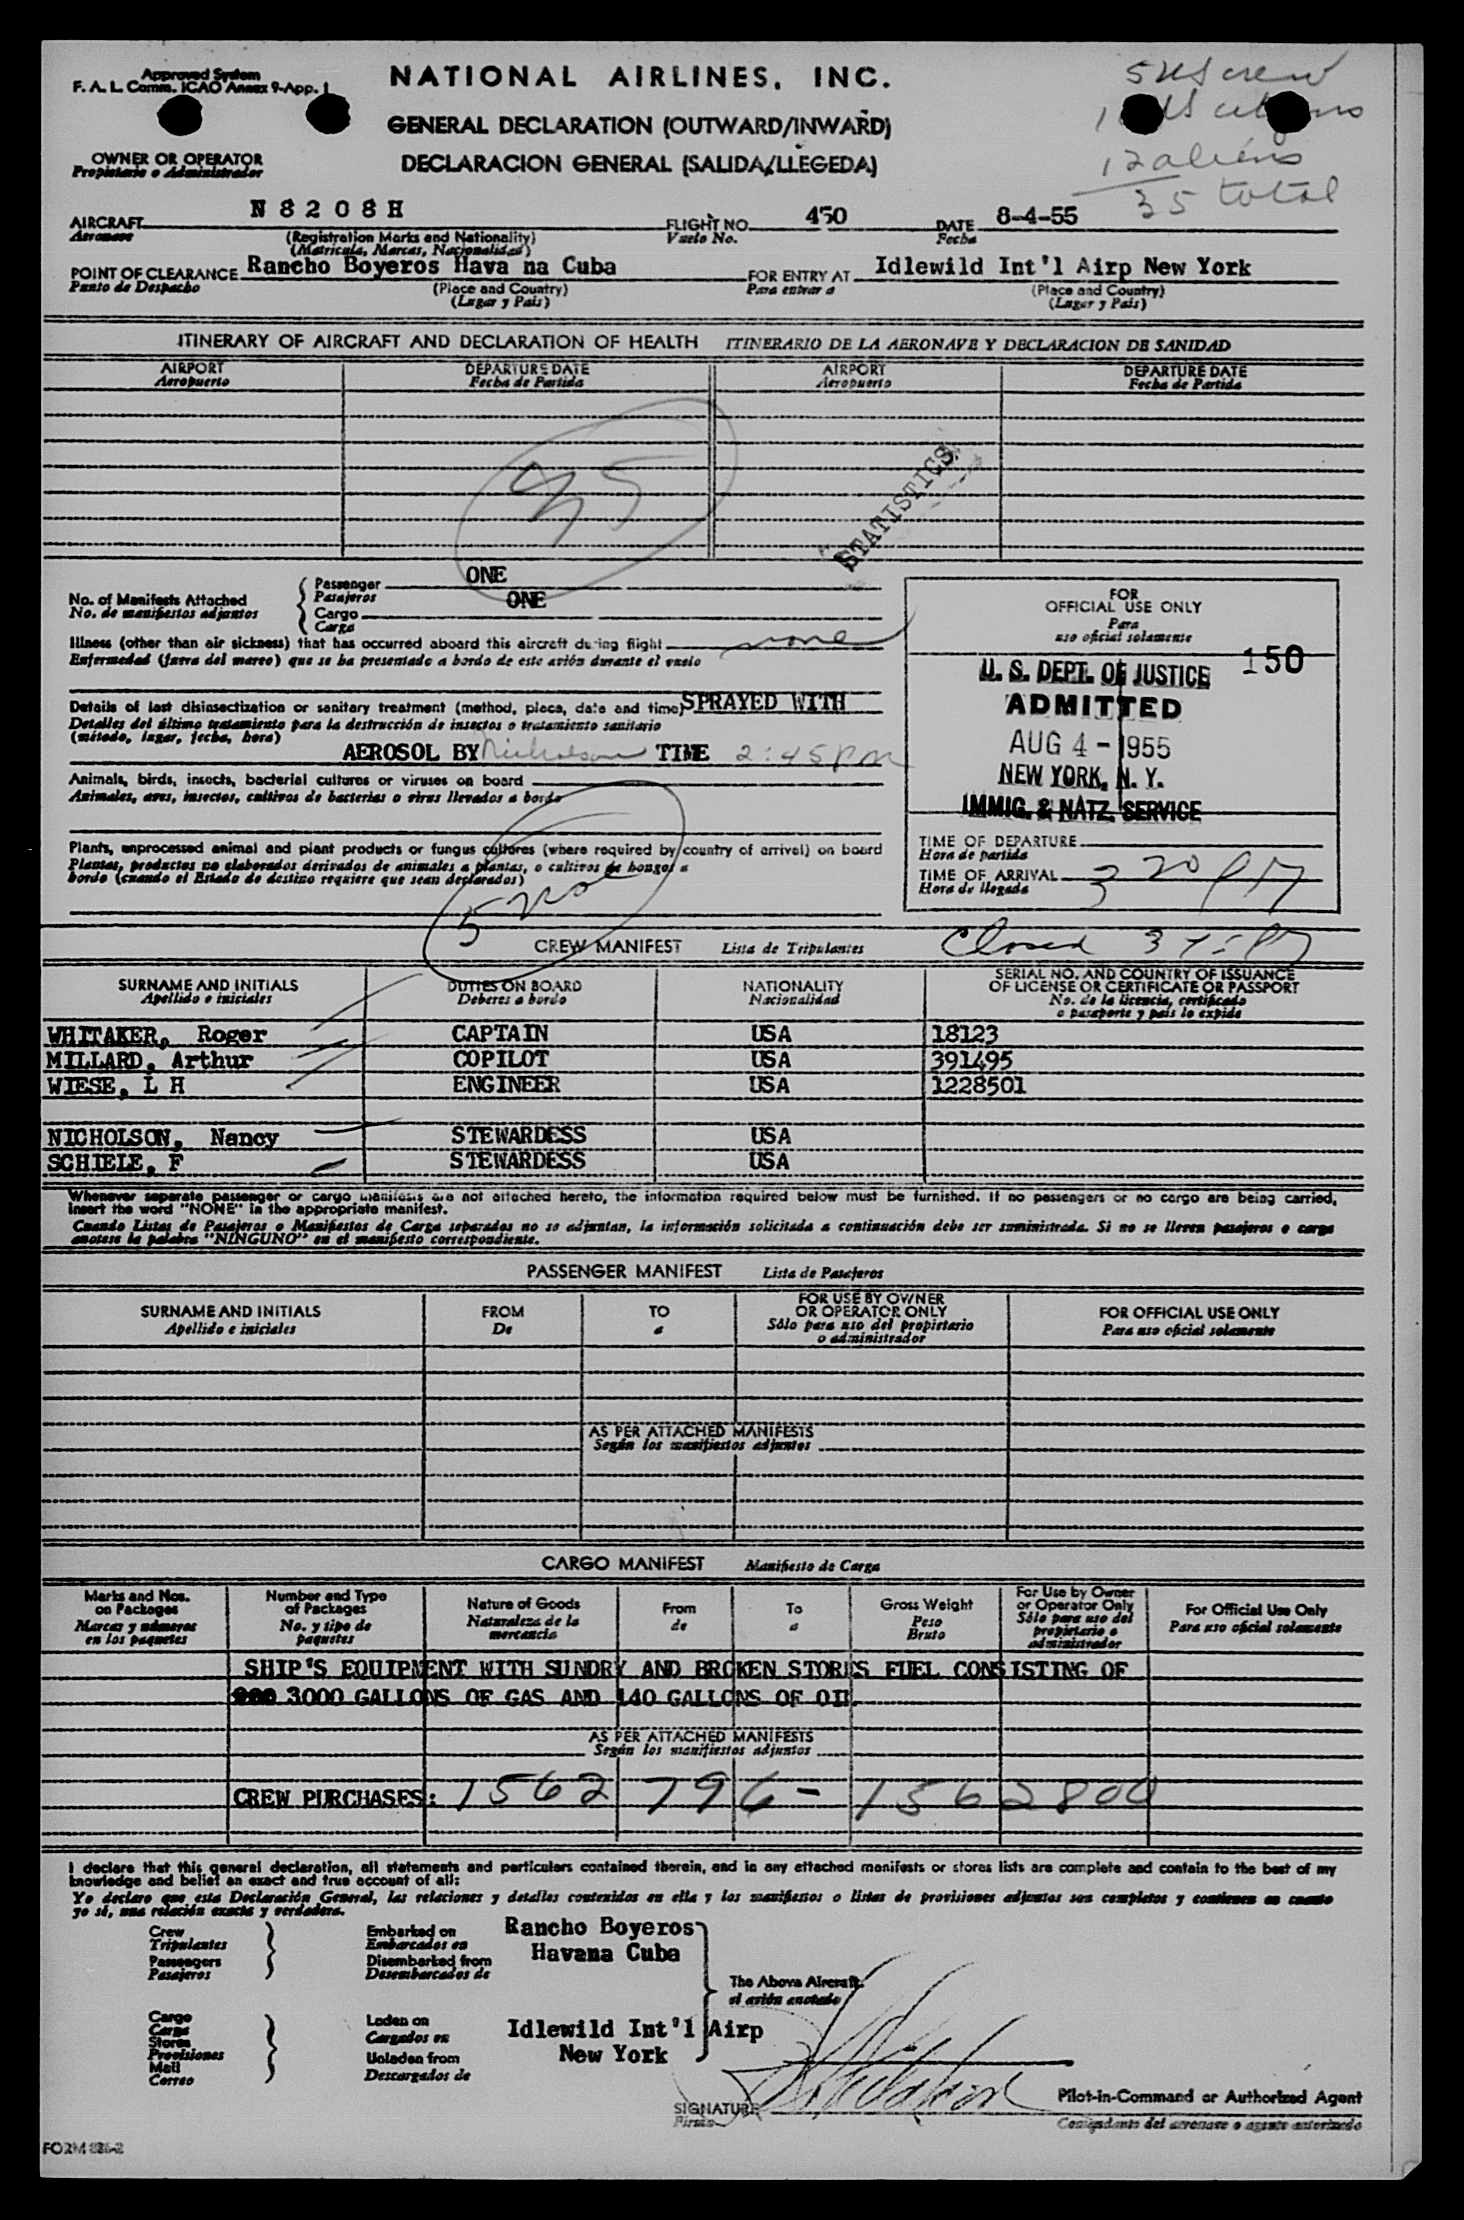 Approved System
F. A. L. Comm. ICAO Annex 9-App. 1
NATIONAL AIRLINES, INC.
GENERAL DECLARATION (OUTWARD/INWARD)
DECLARACION GENERAL (SALIDA/LLEGEDA)
5 US crew
US
12 aliens
35 total
OWNER OR OPERATOR
Propietario o Administrador
AIRCRAFT N8208H FLIGHT NO. 450 DATE 8-4-55
Aeronave (Registration Marks and Nationality) Vuelo No. Fecha
(Matricula, Marcas, Nacionalidad)
POINT OF CLEARANCE Rancho Boyeros Hava na Cuba FOR ENTRY AT Idlewild Int'l Airp New York
Punto de Despacho (Place and Country) Para entrar a (Place and Country)
(Lugar y Pais) (Lugar y Pais)
ITINERARY OF AIRCRAFT AND DECLARATION OF HEALTH ITINERARIO DE LA AERONAVE Y DECLARACION DE SANIDAD
AIRPORT DEPARTURE DATE AIRPORT DEPARTURE DATE
Aeropuerto Fecha de Partida Aeropuerto Fecha de Partida
35
STATISTICS
No. of Manifests Attached
No. de manifiestos adjuntos
Passenger ONE
Pasajeros
Cargo ONE
Carga
Illness (other than air sickness) that has occurred aboard this aircraft during flight none
Enfermedad (fuera del mareo) que se ha presentado a bordo de este avión durante el vuelo
Details of last disinsectization or sanitary treatment (method, place, date and time) SPRAYED WITH
Detalles del último tratamiento para la destrucción de insectos o tratamiento sanitario
(método, lugar, fecha, hora)
AEROSOL BY Nicholson TIME 2:45 PM
Animals, birds, insects, bacterial cultures or viruses on board
Animales, aves, insectos, cultivos de bacterias o virus llevados a bordo
Plants, unprocessed animal and plant products or fungus cultures (where required by country of arrival) on board
Plantas, productos no elaborados derivados de animales a plantas, o cultivos de hongos a
bordo (cuando el Estado de destino requiere que sean declarados)
FOR
OFFICIAL USE ONLY
Para
uso oficial solamente
150
U. S. DEPT. OF JUSTICE
ADMITTED
AUG 4 - 1955
NEW YORK, N. Y.
IMMIG. & NATZ. SERVICE
TIME OF DEPARTURE
Hora de partida
TIME OF ARRIVAL 3 20 PM
Hora de llegada
5
Closed 3
CREW MANIFEST Lista de Tripulantes
SURNAME AND INITIALS DUTIES ON BOARD NATIONALITY SERIAL NO. AND COUNTRY OF ISSUANCE
OF LICENSE OR CERTIFICATE OR PASSPORT
Apellido e iniciales Deberes a bordo Nacionalidad No. de la licencia, certificado
o pasaporte y pais lo expide
WHITAKER, Roger CAPTAIN USA 18123
MILLARD, Arthur COPILOT USA 391495
WIESE, L H ENGINEER USA 1228501
NICHOLSON, Nancy STEWARDESS USA
SCHIELE, F STEWARDESS USA
Whenever separate passenger or cargo manifests are not attached hereto, the information required below must be furnished. If no passengers or no cargo are being carried,
insert the word "NONE" in the appropriate manifest.
Cuando Listas de Pasajeros o Manifiestos de Carga separados no se adjuntan, la información solicitada a continuación debe ser suministrada. Si no se lleven pasajeros o carga
anotese la palabra "NINGUNO" en el manifiesto correspondiente.
PASSENGER MANIFEST Lista de Pasajeros
SURNAME AND INITIALS FROM TO FOR USE BY OWNER
OR OPERATOR ONLY FOR OFFICIAL USE ONLY
Apellido e iniciales De a Sólo para uso del propietario
o administrador Para uso oficial solamente
AS PER ATTACHED MANIFESTS
Según los manifiestos adjuntos
CARGO MANIFEST Manifiesto de Carga
Marks and Nos.
on Packages
Marcas y números
en los paquetes
Number and Type
of Packages
No. y tipo de
paquetes
Nature of Goods
Naturaleza de la
mercancia
From
de
To
a
Gross Weight
Peso
Bruto
For Use by Owner
or Operator Only
Sólo para uso del
propietario o
administrador
For Official Use Only
Para uso oficial solamente
SHIP'S EQUIPMENT WITH SUNDRY AND BROKEN STORES FUEL CONSISTING OF
3000 GALLONS OF GAS AND 140 GALLONS OF OIL.
AS PER ATTACHED MANIFESTS
Según los manifiestos adjuntos
CREW PURCHASES: 1562 796 - 1562800
I declare that this general declaration, all statements and particulars contained therein, and in any attached manifests or stores lists are complete and contain to the best of my
knowledge and belief an exact and true account of all:
Yo declaro que esta Declaración General, las relaciones y detalles contenidos en ella y los manifiestos o listas de provisiones adjuntos son completos y contienen en cuanto
yo sé, una relación exacta y verdadera.
Crew
Tripulantes
Passengers
Pasajeros
Embarked on
Embarcados en
Disembarked from
Desembarcados de
Rancho Boyeros
Havana Cuba
The Above Aircraft.
el avión anotado
Cargo
Carga
Stores
Provisiones
Mail
Correo
Laden on
Cargados en
Unladen from
Descargados de
Idlewild Int'l Airp
New York
SIGNATURE
Firma
Pilot-in-Command or Authorized Agent
Comandante del aeronave o agente autorizado
FORM 886-2